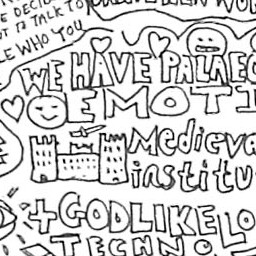 E DECIDE
T TO TALK TO
LE WHO YOU
WE HAVE PALAEO
EMOTI
Medieva
institu
+GODLIKE
TECHNO